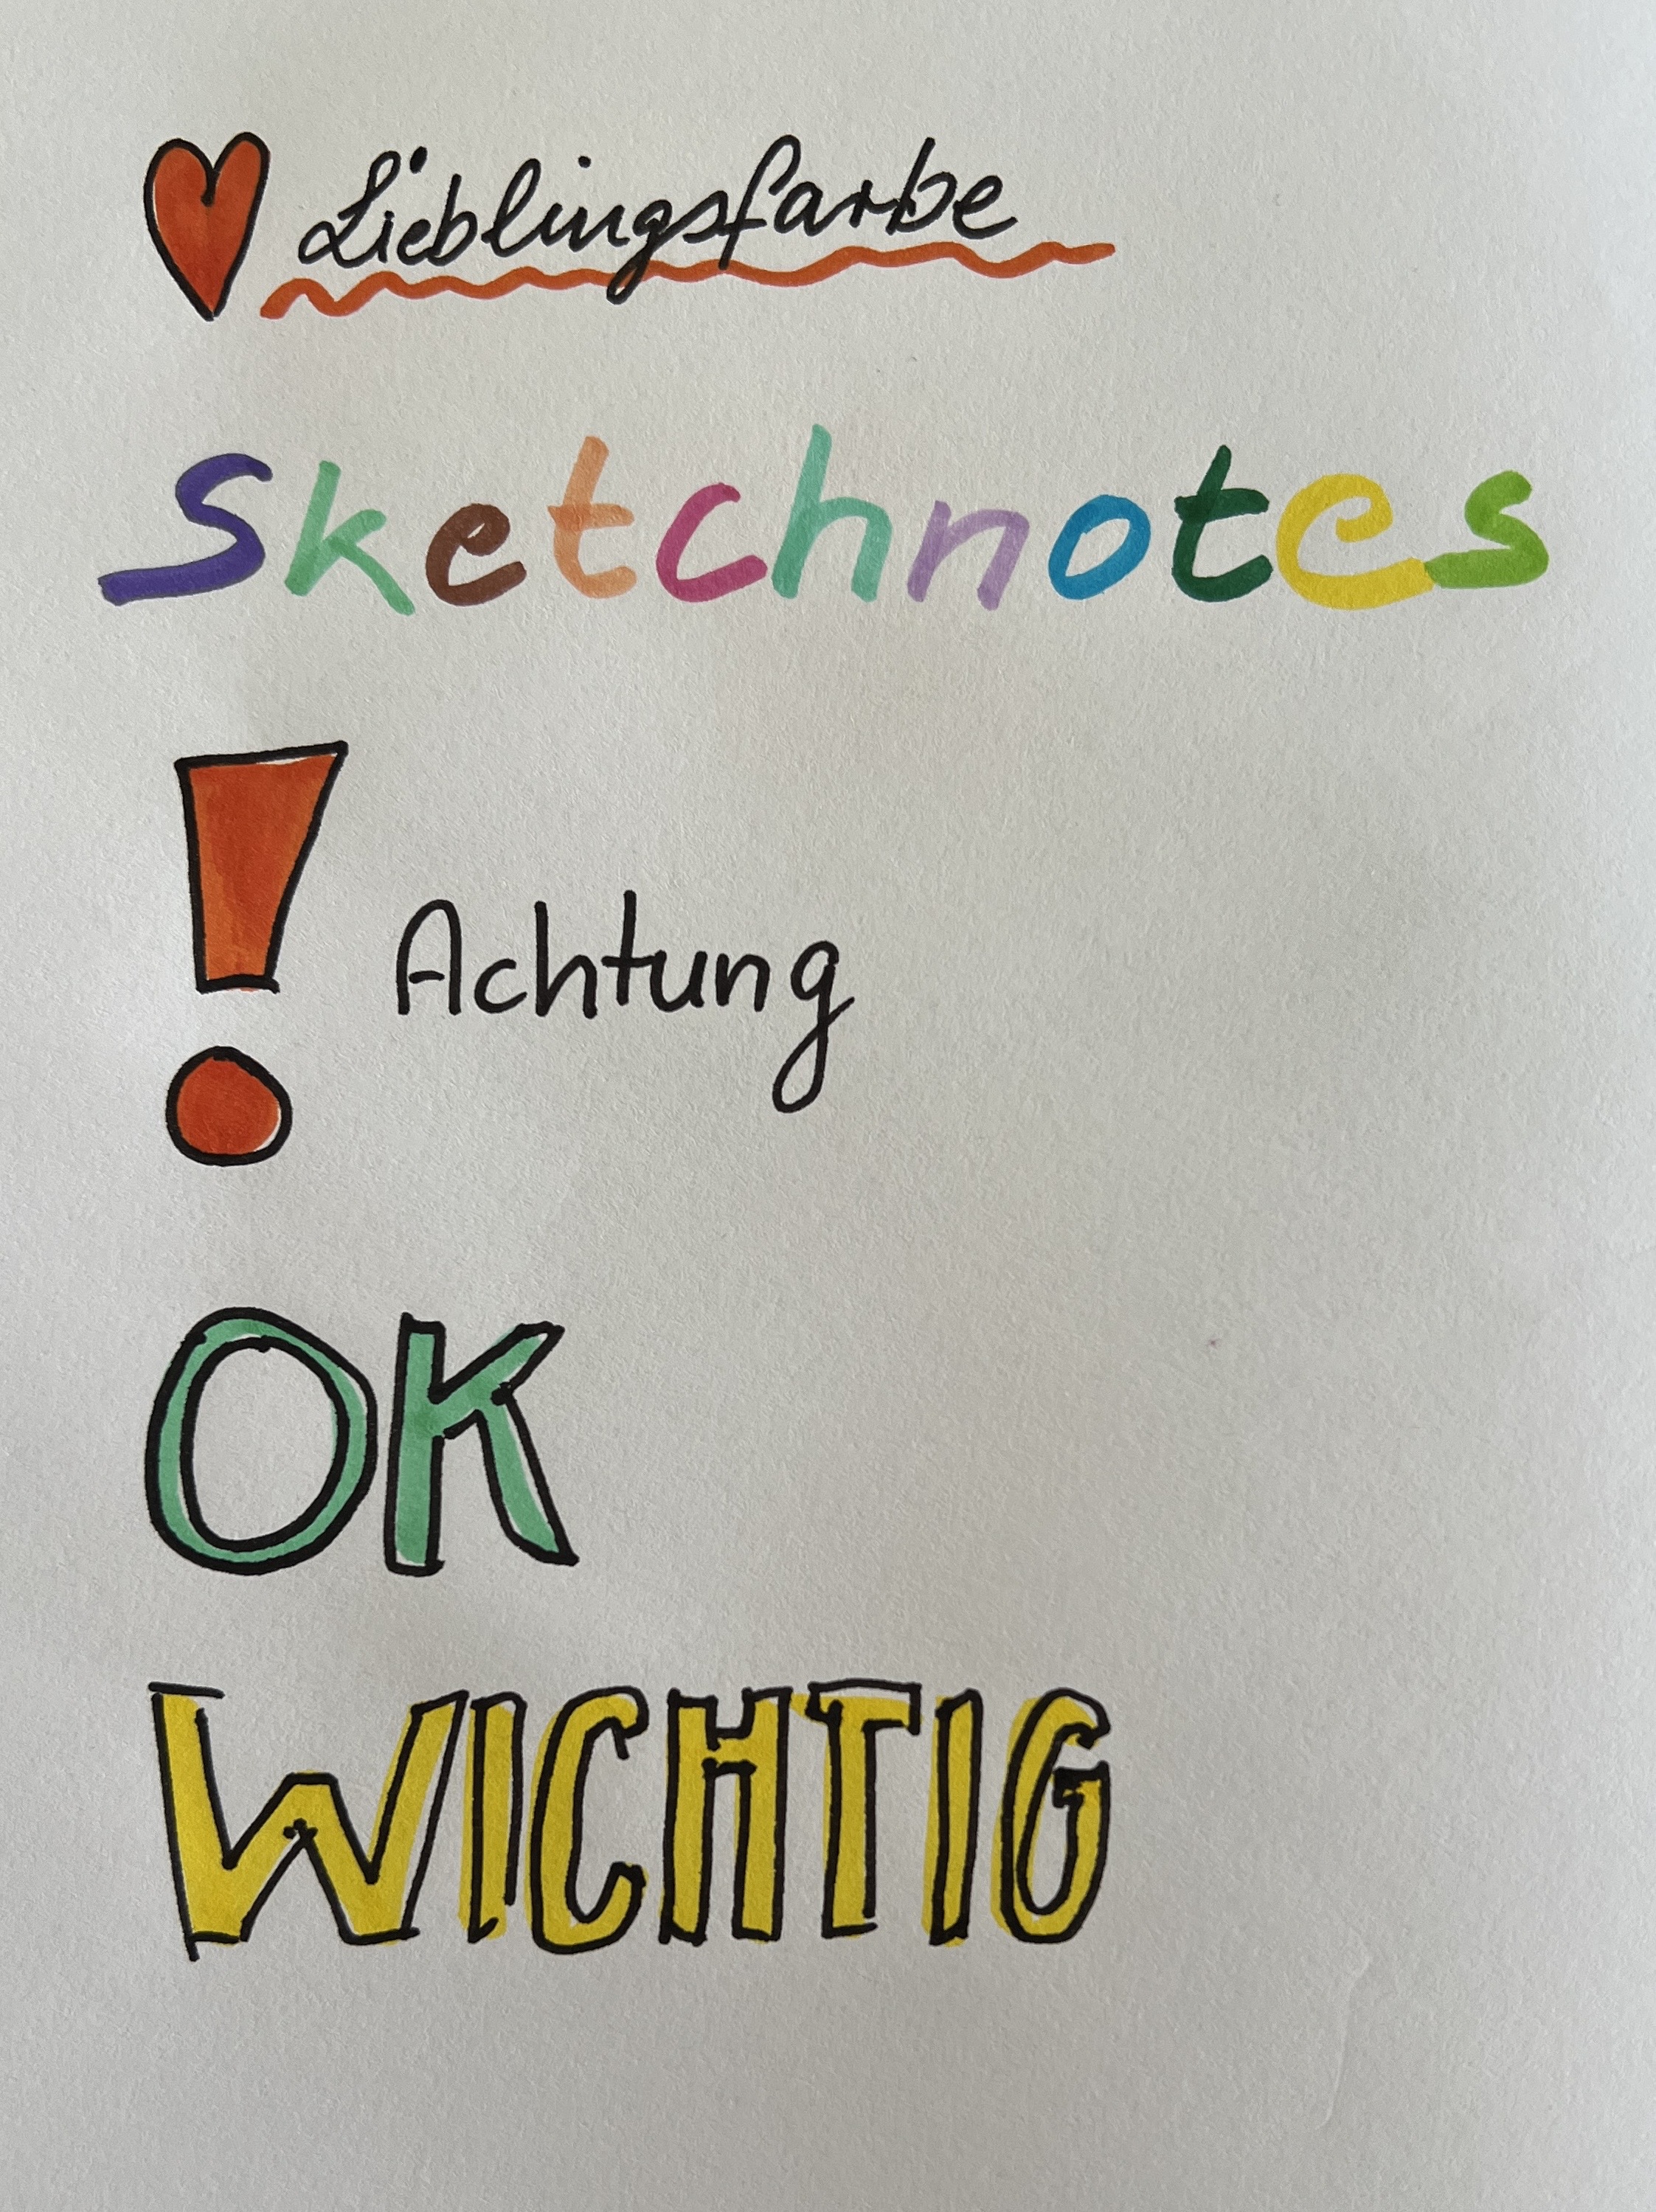 Lieblingsfarbe
Sketchnotes
! Achtung
OK
WICHTIG